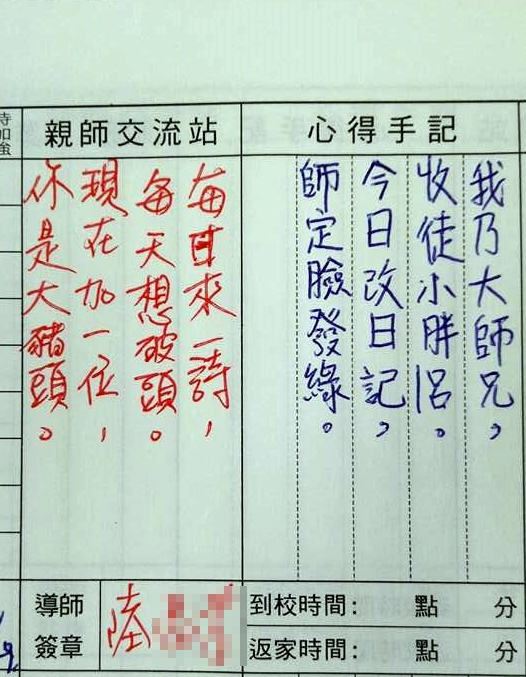 待加強
親師交流站
心得手記
我乃大師兄，
收徒小胖呂。
今日改日記，
師定臉發綠。
每日來一詩，
每天想破頭。
現在加一位，
你是大豬頭。
導師簽章
陸
到校時間： 點 分
返家時間： 點 分